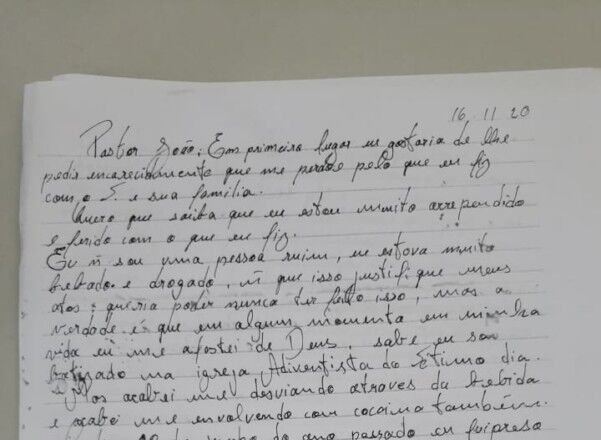 16 11 20
Pastor João; Em primeiro lugar eu gostaria de lhe
pedir encarecidamente que me perdoe pelo que eu fiz
com o S. e sua família.
Quero que saiba que eu estou muito arrependido
e ferido com o que eu fiz.
Eu ñ sou uma pessoa ruim, eu estava muito
bebado e drogado, ñ que isso justifique meus
atos; queria poder nunca ter feito isso, mas a
verdade é que em algum momento em minha
vida eu me afastei de Deus, sabe eu sou
batizado na igreja Adventista do Setimo dia.
Mas acabei me desviando atraves da bebida
e acabei me envolvendo com cocaina também.
do ano passado eu fui preso